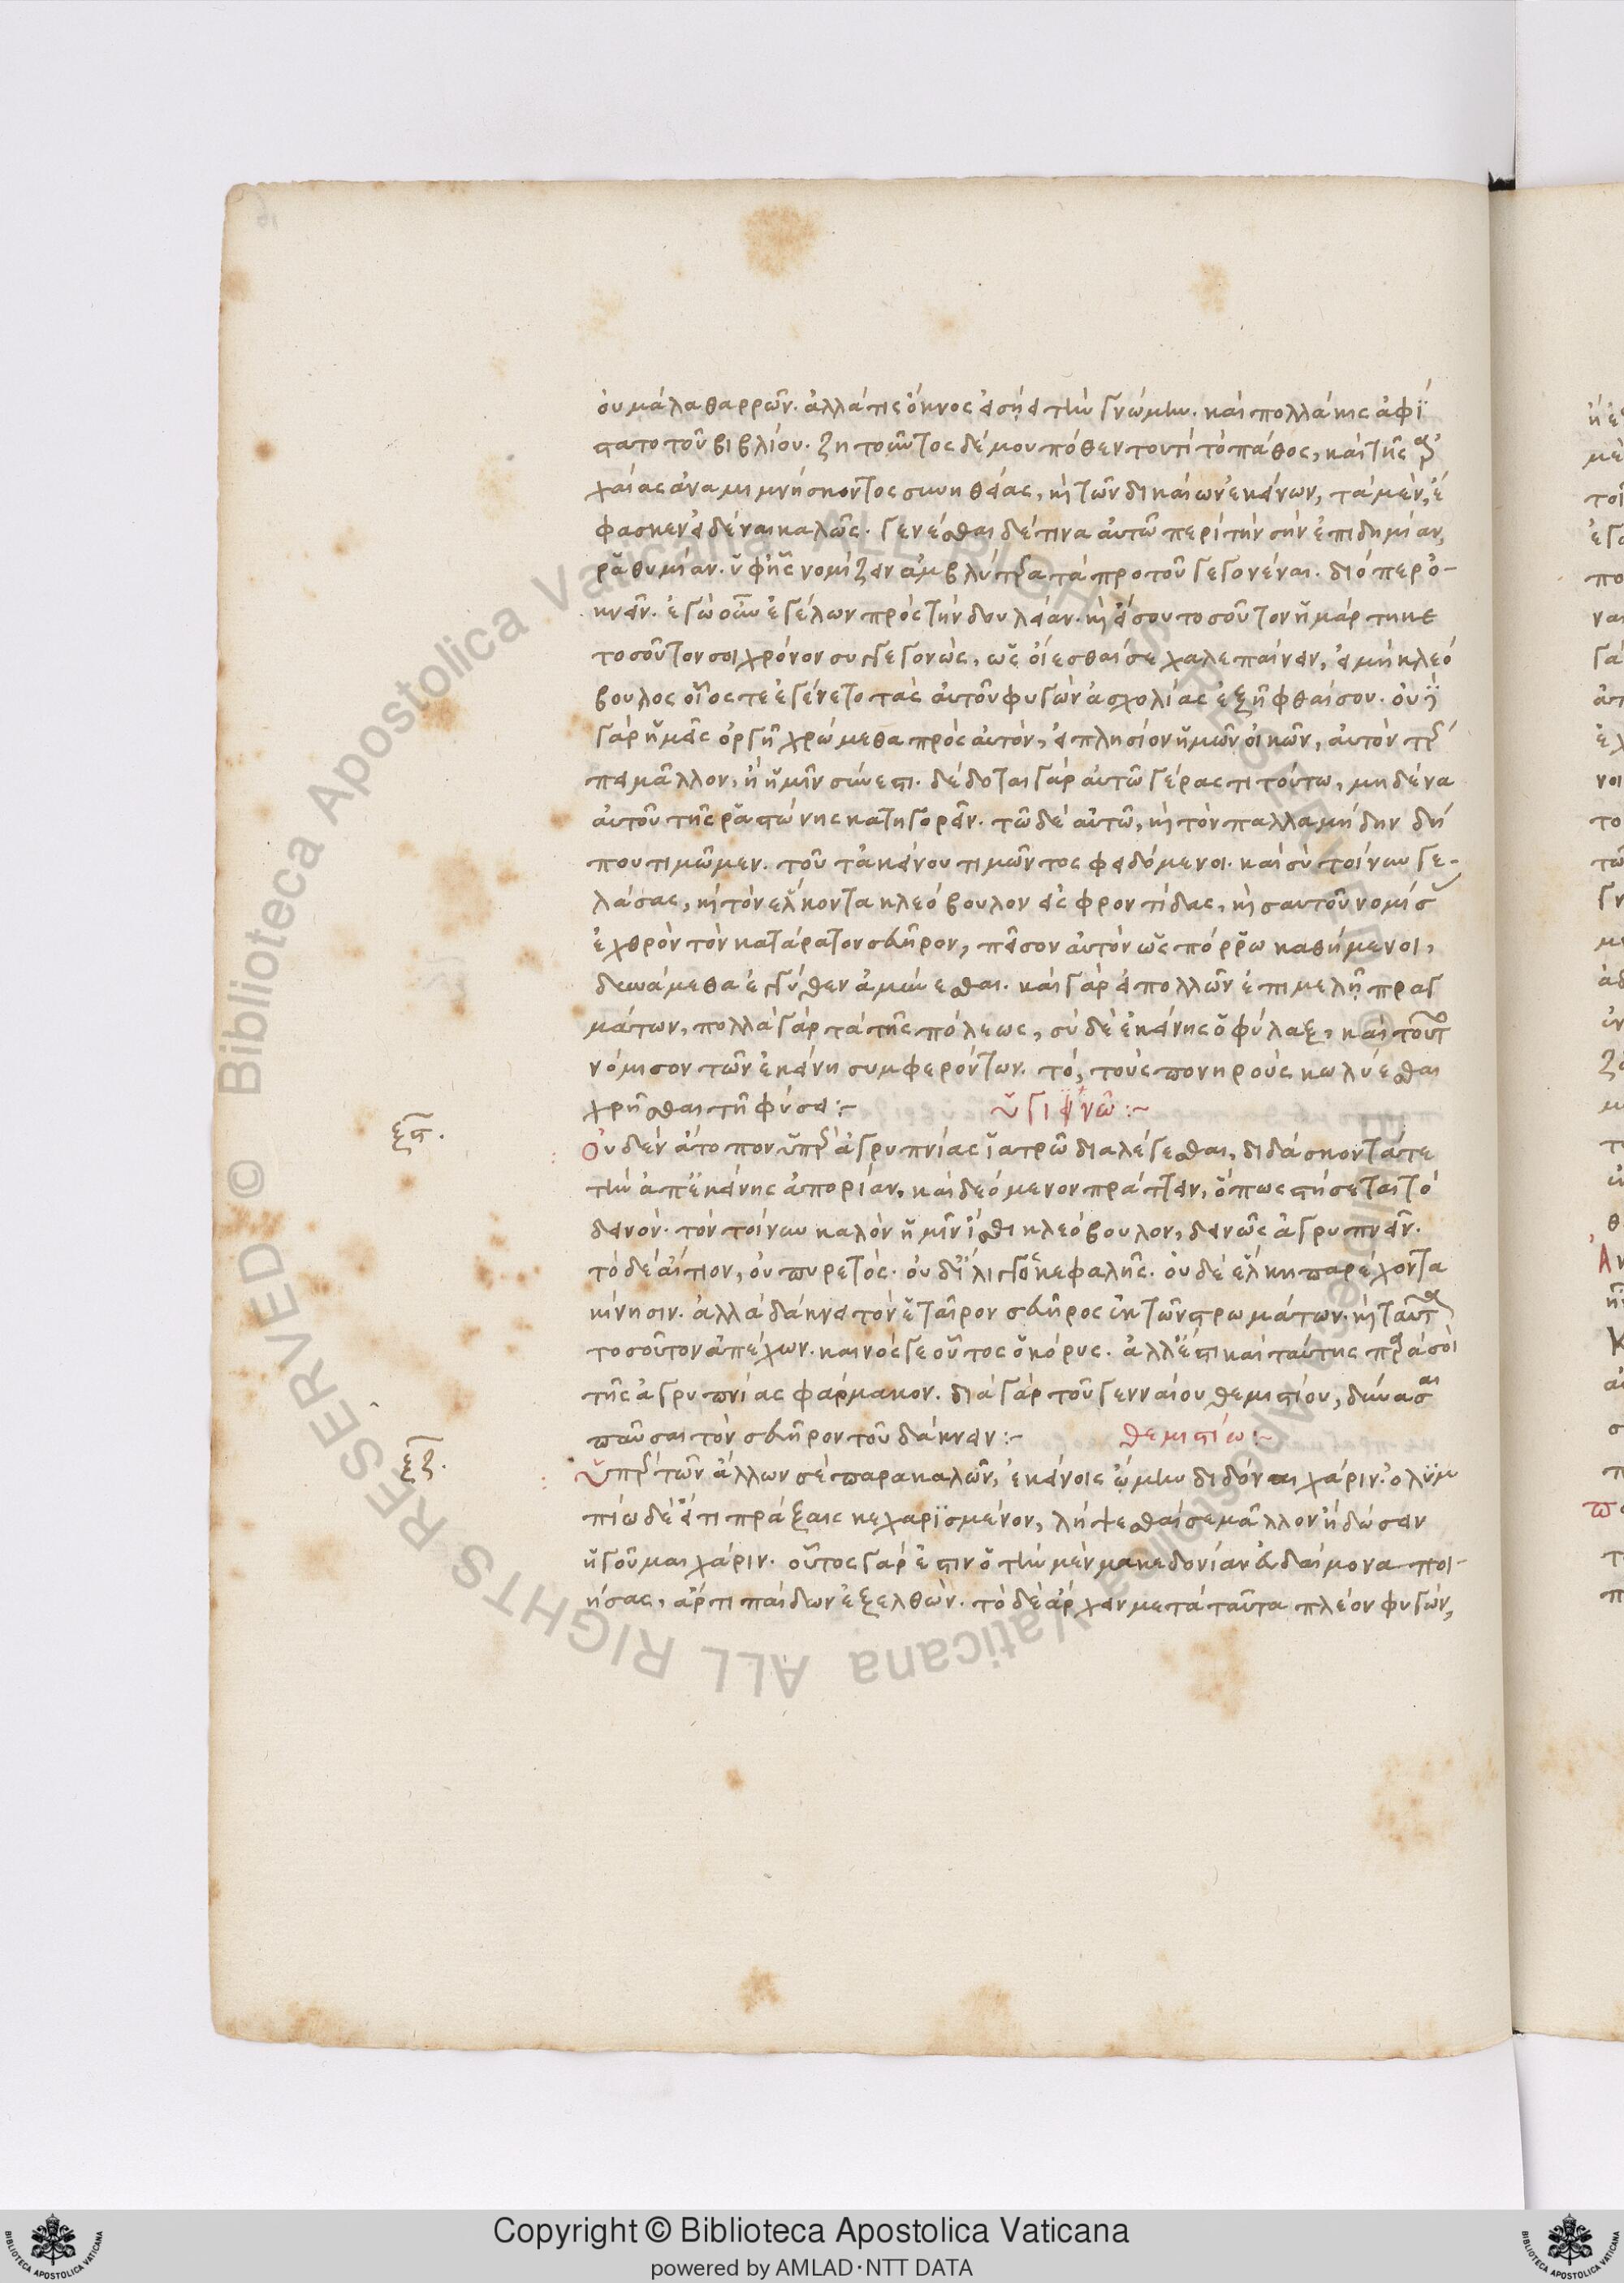 οὐ μάλα θαρρῶν. ἀλλά τις ὄκνος εἰσῄει τὴν γνώμην. καὶ πολλάκις ἀφί
στατο τοῦ βιβλίου. ζητοῦντος δέ μου πόθεν τουτὶ τὸ πάθος, καὶ τῆς ἀρ
χαίας ἀναμιμνήσκοντος συνηθείας, καὶ τῶν δικαίων ἐκείνων, τὰ μὲν, ἔ
φασκεν εἰδέναι καλῶς. γενέσθαι δέ τινα αὐτῶ περὶ τὴν σὴν ἐπιδημίαν,
ῥαθυμίαν. ὑφ' ἧς νομίζειν ἀμβλύτερα τὰ πρὸ τοῦ γεγονέναι. διόπερ ὀ-
κνεῖν. ἐγὼ οὖν ἐγέλων πρὸς τὴν δουλείαν. καὶ εἴ σου τοσοῦτον ἡμάρτηκε
τοσοῦτον σοι χρόνον συγγεγονὼς, ὡς οἴεσθαί σε χαλεπαίνειν, εἰ μὴ κλεό
βουλος οἷός τε ἐγένετο τὰς αὐτοῦ φυγὼν ἀσχολίας ἐξῆφθαί σου. οὐδὲ
γὰρ ἡμεῖς ὀργῇ χρώμεθα πρὸς αὐτὸν, εἰ πλησίον ἡμῶν οἰκῶν, αὐτὸν τρέ
πει μᾶλλον, ἢ ἡμῖν σύνεστι. δέδοται γὰρ αὐτῶ γέρας τι τούτω, μηδένα
αὐτοῦ τῆς ῥαστώνης κατηγορεῖν. τῶ δὲ αὐτῶ, καὶ τὸν παλλαμήδην δή
που τιμῶμεν. τοῦ τἀκείνου τιμῶντος φειδόμενοι. καὶ σὺ τοίνυν γε-
λάσας, καὶ τὸν ἕλκοντα κλεόβουλον εἰς φροντίδας, καὶ σαυτοῦ νομίσας
ἐχθρὸν τὸν κατάρατον σευῆρον, πεῖσον αὐτὸν ὡς πόρρω καθήμενοι,
δυνάμεθα ἐγγύθεν ἀμύνεσθαι. καὶ γὰρ εἰ πολλῶν ἐπιμελῇ πραγ
μάτων, πολλὰ γὰρ τὰ τῆς πόλεως, σὺ δὲ ἐκείνης ὁ φύλαξ, καὶ τοῦτο
νόμισον τῶν ἐκείνη συμφερόντων. τό, τοὺς πονηροὺς κωλύεσθαι
χρῆσθαι τῆ φύσει:- ὑγιεινῶ:-
ξϛ.
Οὐδὲν ἄτοπον ὑπὲρ ἀγρυπνίας ἰατρῶ διαλέγεσθαι, διδάσκοντά τε
τὴν ἀπ' ἐκείνης ἀπορίαν, καὶ δεόμενον πράττειν, ὅπως στήσεται τὸ
δεινόν. τὸν τοίνυν καλὸν ἡμῖν ἴσθι κλεόβουλον, δεινῶς ἀγρυπνεῖν.
τὸ δὲ αἴτιον, οὐ πυρετός. οὐδ' ἴλιγγος κεφαλῆς. οὐδὲ ἕλκη παρέχοντα
κίνησιν. ἀλλὰ δάκνει τὸν ἑταῖρον σευῆρος ἐκ τῶν στρωμάτων. καὶ ταῦτα
τοσοῦτον ἀπέχων. καινός γε οὗτος ὁ κόρυς. ἀλλ' ἔστι καὶ ταύτης παρά σοι
τῆς ἀγρυπνίας φάρμακον. διὰ γὰρ τοῦ γενναίου θεμιστίου, δύνασαι
παῦσαι τὸν σευῆρον τοῦ δάκνειν:- θεμιστίω:-
ξζ.
Ὑπὲρ τῶν ἄλλων σὲ παρακαλῶν, ἐκείνοις ᾤμην διδόναι χάριν. ὀλυμ
πίω δὲ εἴ τι πράξαις κεχαρισμένον, λήψεσθαί σε μᾶλλον ἢ δώσειν
ἡγοῦμαι χάριν. οὗτος γάρ ἐστιν ὁ τὴν μὲν μακεδονίαν εὐδαίμονα ποι-
ήσας, ἄρτι παίδων ἐξελθών. τὸ δὲ ἄρχειν μετὰ ταῦτα πλέον φυγών,
Copyright © Biblioteca Apostolica Vaticana
powered by AMLAD·NTT DATA